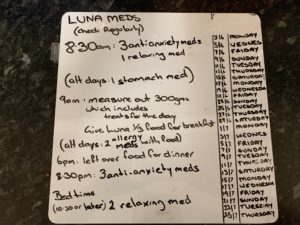 LUNA MEDS
(Check Regularly)
8:30am: 3 antianxiety meds
1 relaxing med
(alt days: 1 stomach med)
9am: measure out 300gms
which includes
treats for the day
Give Luna 1/3 food for breakfast
(alt days: 2 allergy meds with food)
6pm: left over food for dinner
8:30pm: 3 anti-anxiety meds
Bed time
(10:30 or later) 2 relaxing med
MONDAY
WEDNES
FRIDAY
SUNDAY
TUESDAY
THURSDAY
MONDAY
WEDNESDAY
FRIDAY
SUNDAY
TUESDAY
THURSDAY
SATURDAY
MONDAY
WEDNES
FRIDAY
SUNDAY
TUESDAY
THURSDAY
SATURDAY
MONDAY
WEDNESDAY
FRIDAY
SUNDAY
TUESDAY
THURSDAY